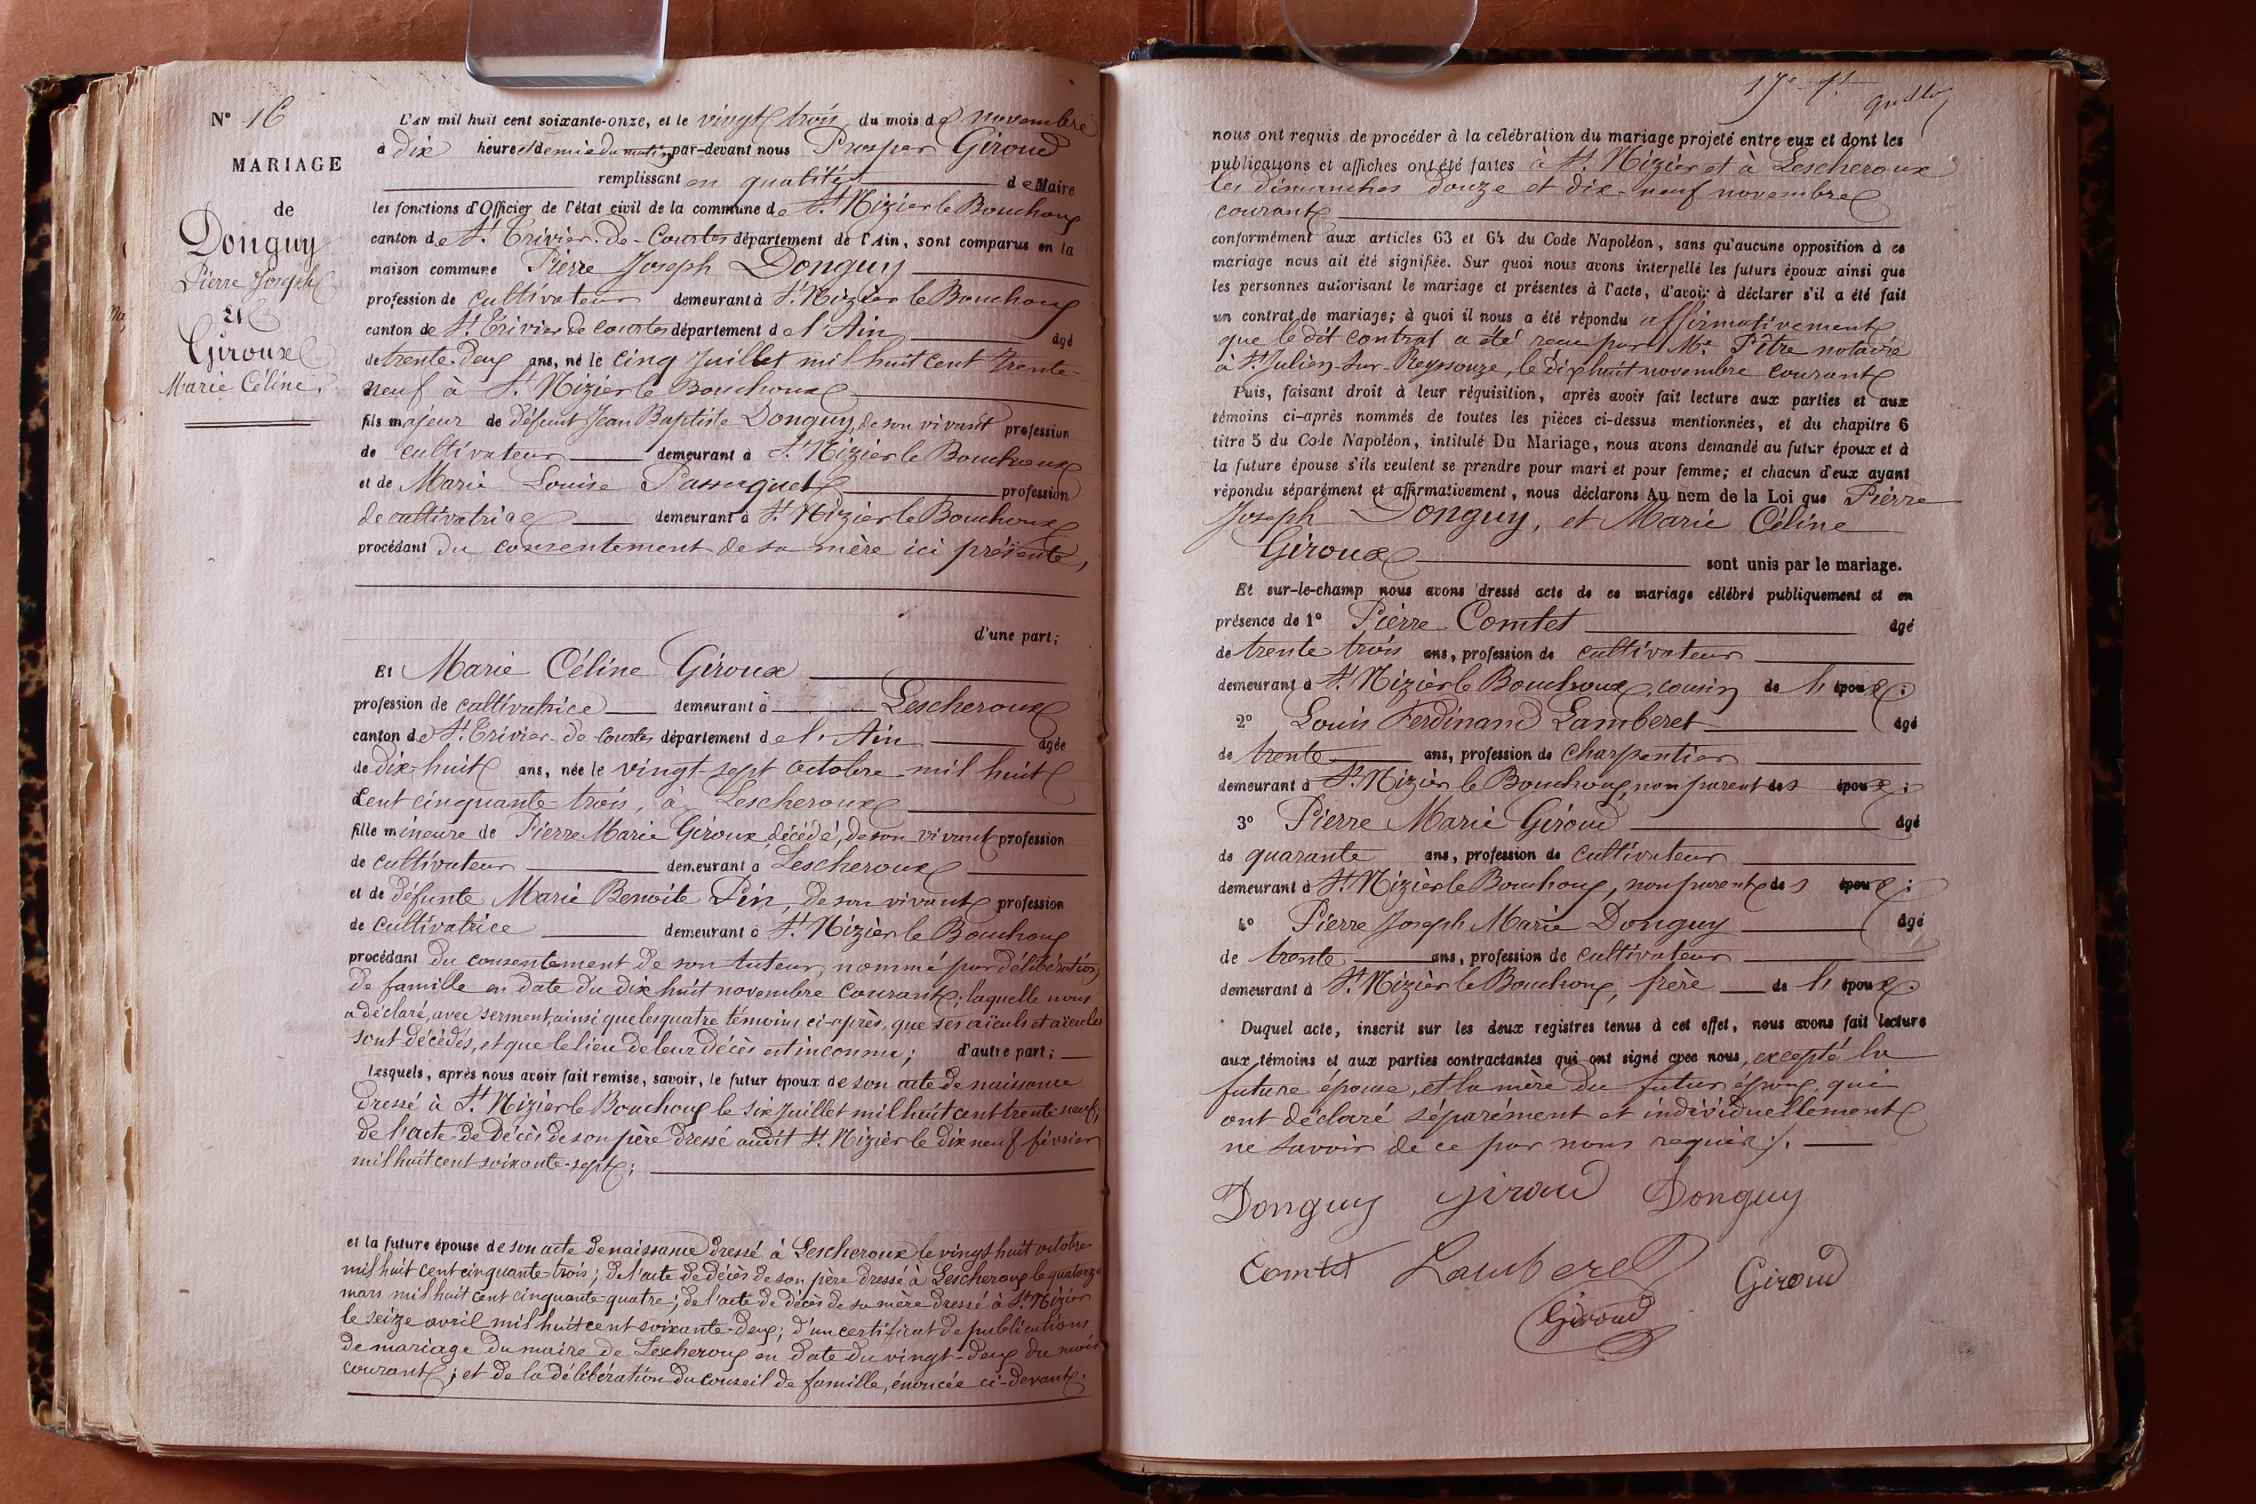 N° 16
MARIAGE
de
Donguy
Pierre Joseph
et
Giroux
Marie Céline.
L'AN mil huit cent soixante-onze, et le vingt trois du mois de novembre
à dix heures et demie du matin par-devant nous Prosper Giroud
remplissant en qualité de Maire
les fonctions d'Officier de l'état civil de la commune de St Nizier le Bouchoux
canton de St Trivier-de-Courtes département de l'Ain, sont comparus en la
maison commune Pierre Joseph Donguy
profession de cultivateur demeurant à St Nizier le Bouchoux
canton de St Trivier de courtes département de l'Ain âgé
de trente-deux ans, né le cinq Juillet mil huit cent trente-
neuf à St Nizier le Bouchoux
fils majeur de défunt Jean Baptiste Donguy, de son vivant profession
de cultivateur demeurant à St Nizier le Bouchoux
et de Marie Louise profession
de cultivatrice demeurant à St Nizier le Bouchoux
procédant du consentement de sa mère ici présente,
d'une part;
Et Marie Céline Giroux
profession de cultivatrice demeurant à Lescheroux
canton de St Trivier-de-Courtes département de l'Ain âgée
de dix-huit ans, née le vingt-sept octobre mil huit
Cent cinquante-trois, à Lescheroux
fille mineure de Pierre Marie Giroux, décédé, de son vivant profession
de cultivateur demeurant à Lescheroux
et de défunte Marie Benoite Pin, de son vivant profession
de cultivatrice demeurant à St Nizier le Bouchoux
procédant du consentement de son tuteur, nommé par délibération
de famille en date du dix huit novembre courant; laquelle nous
a déclaré, avec serment, ainsi que les quatre témoins ci-après, que ses aïeuls et aïeules
sont décédés, et que le lieu de leur décès est inconnu; d'autre part;
Lesquels, après nous avoir fait remise, savoir, le futur époux de son acte de naissance
dressé à St Nizier le Bouchoux le six Juillet mil huit cent trente-neuf;
de l'acte de décès de son père dressé audit St Nizier le dix neuf février
mil huit cent soixante-sept;
et la future épouse de son acte de naissance dressé à Lescheroux le vingt huit octobre
mil huit cent cinquante-trois; de l'acte de décès de son père dressé à Lescheroux le quatorze
mars mil huit cent cinquante-quatre; de l'acte de décès de sa mère dressé à St Nizier
le seize avril mil huit cent soixante-deux; d'un certificat de publications
de mariage du maire de Lescheroux en date du vingt-deux du mois
courant; et de la délibération du conseil de famille, énoncée ci-devant.
nous ont requis de procéder à la célébration du mariage projeté entre eux et dont les
publications et affiches ont été faites à St Nizier et à Lescheroux
les dimanches douze et dix-neuf novembre
courant
conformément aux articles 63 et 64 du Code Napoléon, sans qu'aucune opposition à ce
mariage nous ait été signifiée. Sur quoi nous avons interpellé les futurs époux ainsi que
les personnes autorisant le mariage et présentes à l'acte, d'avoir à déclarer s'il a été fait
un contrat de mariage; à quoi il nous a été répondu affirmativement
que le dit contrat a été reçu par Me Pître notaire
à St Julien-sur-Reyssouze, le dix huit novembre courant
Puis, faisant droit à leur réquisition, après avoir fait lecture aux parties et aux
témoins ci-après nommés de toutes les pièces ci-dessus mentionnées, et du chapitre 6
titre 5 du Code Napoléon, intitulé Du Mariage, nous avons demandé au futur époux et à
la future épouse s'ils veulent se prendre pour mari et pour femme; et chacun d'eux ayant
répondu séparément et affirmativement, nous déclarons Au nom de la Loi que Pierre
Joseph Donguy, et Marie Céline
Giroux sont unis par le mariage.
Et sur-le-champ nous avons dressé acte de ce mariage célébré publiquement et en
présence de 1° Pierre Comtet âgé
de trente trois ans, profession de cultivateur
demeurant à St Nizier le Bouchoux, cousin de l'époux;
2° Louis Ferdinand Lamberet âgé
de trente ans, profession de charpentier
demeurant à St Nizier le Bouchoux, non parent des époux;
3° Pierre Marie Giroud âgé
de quarante ans, profession de cultivateur
demeurant à St Nizier le Bouchoux, non parent des époux;
4° Pierre Joseph Marie Donguy âgé
de trente ans, profession de cultivateur
demeurant à St Nizier le Bouchoux, frère de l'époux.
Duquel acte, inscrit sur les deux registres tenus à cet effet, nous avons fait lecture
aux témoins et aux parties contractantes qui ont signé avec nous, excepté la
future épouse, et la mère du futur époux, qui
ont déclaré séparément et individuellement
ne savoir de ce par nous requis /.
Donguy Giroud Donguy
Comtet Lamberet Giroud
Giroud